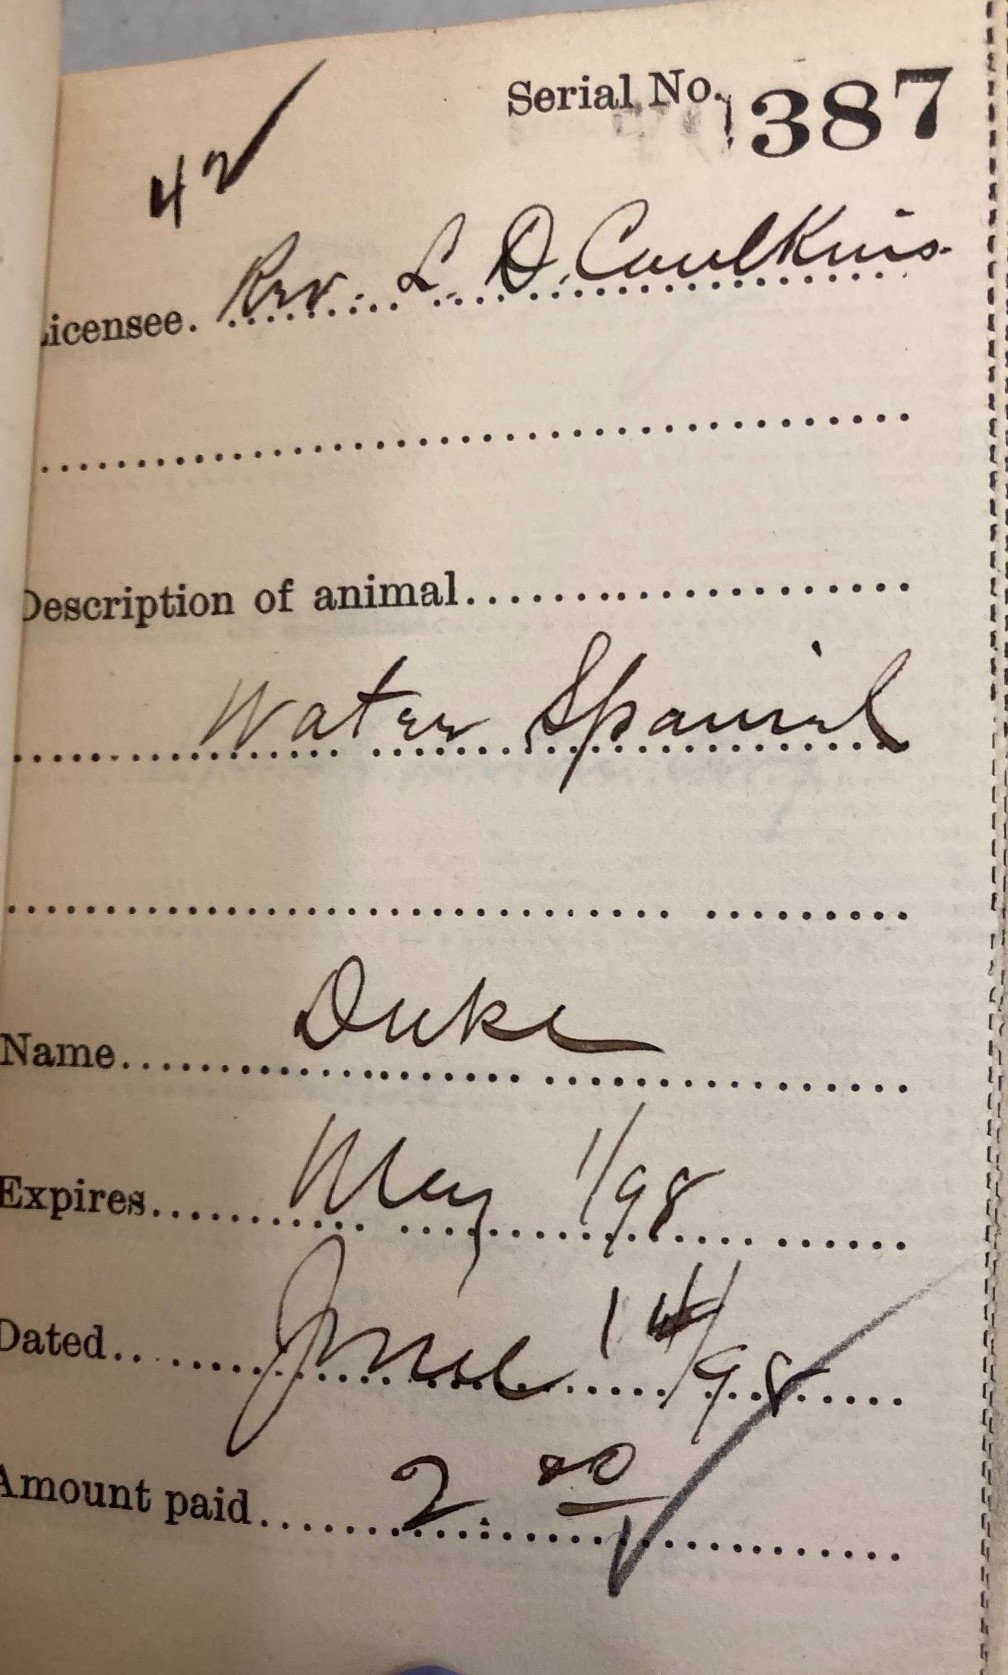 Serial No. 387
42
Licensee. Rev. L. D. Caulkins.
Description of animal
Water Spaniel
Name Duke
Expires May 1/98
Dated June 14/98
Amount paid 2.00